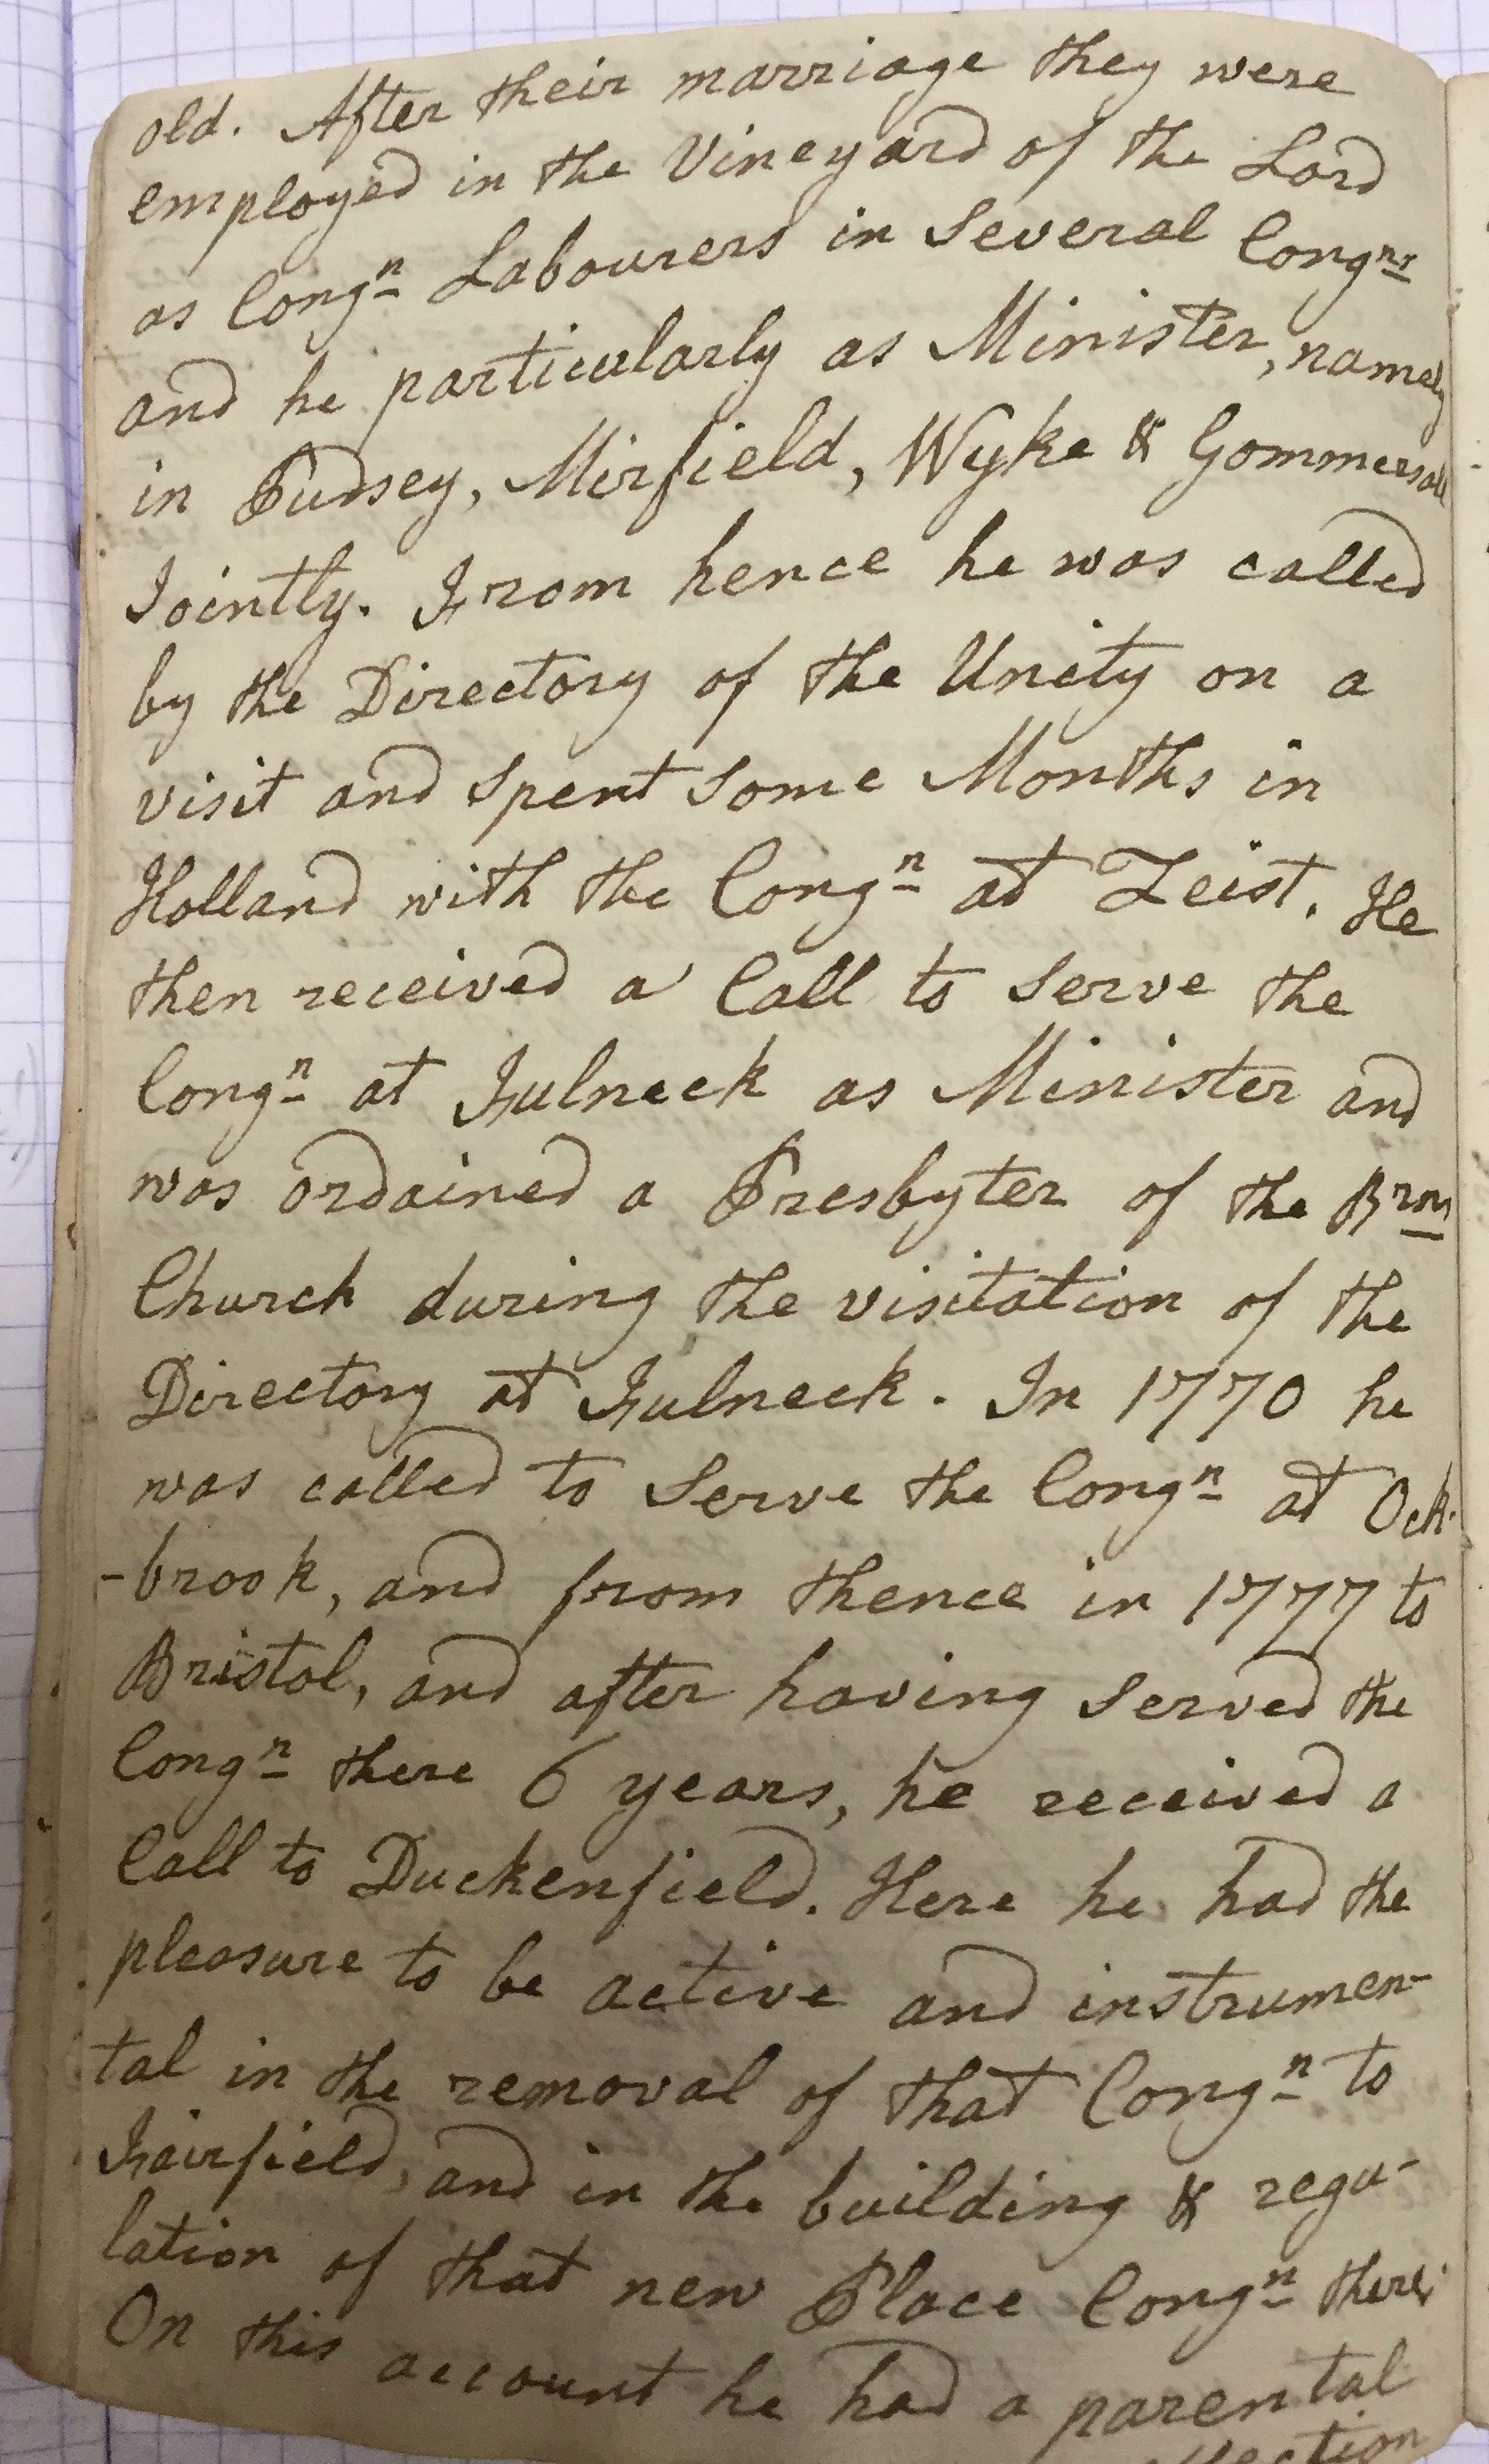 old. After their marriage they were
employed in the Vineyard of the Lord
as Congn Labourers in Several Congns
and he particularly as Minister, namely
in Pudsey, Mirfield, Wyke & Gommersall
Jointly. From hence he was called
by the Directory of the Unity on a
visit and spent some Months in
Holland with the Congn at Zeist. He
then received a Call to serve the
Congn at Fulneck as Minister and
was ordained a Presbyter of the Brns
Church during the visitation of the
Directory at Fulneck. In 1770 he
was called to serve the Congn at Ock-
-brook, and from thence in 1777 to
Bristol, and after having served the
Congn there 6 years, he received a
Call to Duckenfield. Here he had the
pleasure to be active and instrumen-
tal in the removal of that Congn to
Fairfield, and in the building & regu-
lation of that new Place Congn there.
On this account he had a parental